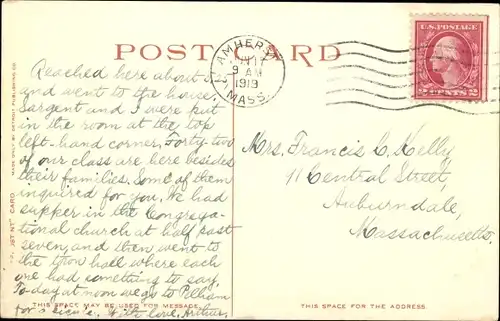 POST CARD
AMHERST
9 AM
1919
MASS.
U.S. POSTAGE
2 CENTS 2
Reached here about 5
and went to the house.
Sargent and I were put
in the room at the top
left-hand corner. Forty-two
of our class are here besides
their families. Some of them
inquired for you. We had
supper in the Congrega-
tional church at half past
seven, and then went to
the town hall where each
one had something to say.
Today at noon we go to Pelham
for a picnic. With love, Arthur.
Mrs. Francis C. Kelly,
11 Central Street,
Auburndale,
Massachusetts.
MADE ONLY BY DETROIT PUBLISHING CO.
THIS SPACE MAY BE USED FOR MESSAGE
THIS SPACE FOR THE ADDRESS.